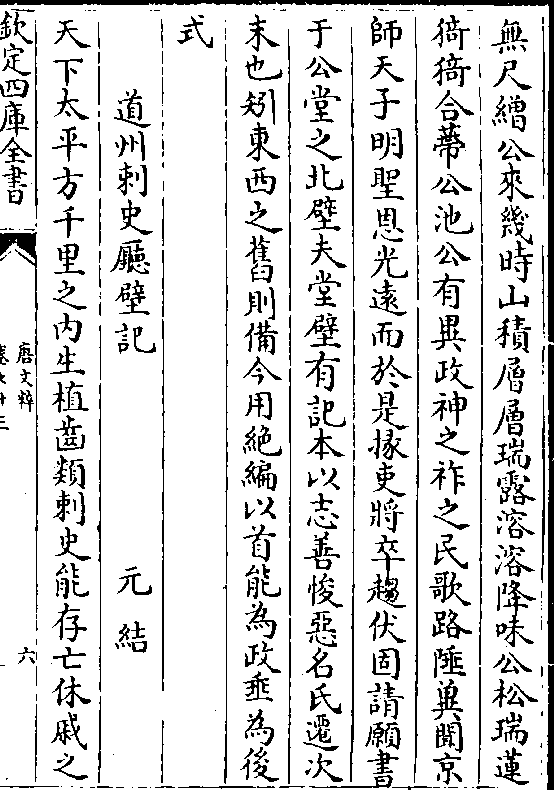 無尺繒公來幾時山積層層瑞露溶溶降味公松瑞蓮
猗猗合蔕公池公有異政神之祚之民歌路陲兾聞京
師天子明聖恩光遠而於是掾吏將卒趨伏固請願書
于公堂之北壁夫堂壁有記本以志善悛惡名氏遷次
末也矧東西之舊則備今用絶編以首能為政垂為後
式
道州刺史廳壁記 元結
天下太平方千里之内生植齒類刺史能存亡休戚之
欽定四庫全書
唐文粹
卷七十三
六